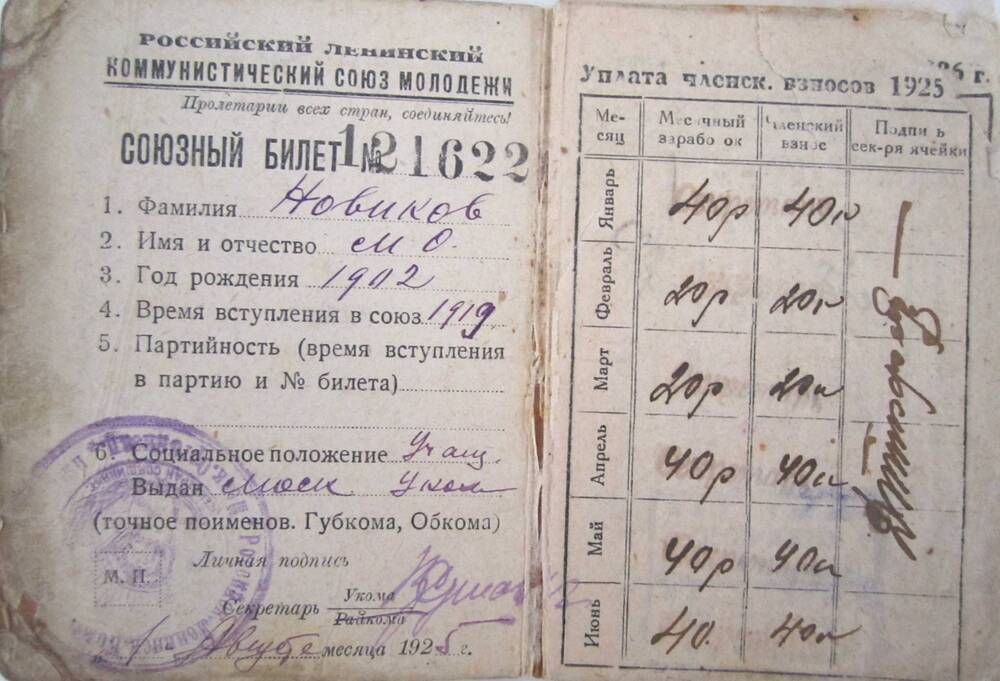 РОССИЙСКИЙ ЛЕНИНСКИЙ
КОММУНИСТИЧЕСКИЙ СОЮЗ МОЛОДЕЖИ
Пролетарии всех стран, соединяйтесь!
СОЮЗНЫЙ БИЛЕТ № 121622
1. Фамилия Новиков
2. Имя и отчество М О.
3. Год рождения 1902
4. Время вступления в союз 1919
5. Партийность (время вступления
в партию и № билета)
6. Социальное положение Учащ.
Выдан Моск Уком
(точное поименов. Губкома, Обкома)
Личная подпись
М. П.
Секретарь Укома
Райкома
Августа месяца 1925 г.
Уплата членск. взносов 1925 26 г.
Ме-сяц Месячный заработок Членский взнос Подпись сек-ря ячейки
Январь 40р 40к
Февраль 20р 20к
Март 20р 20к
Апрель 40р 40к
Май 40р 40к
Июнь 40. 40к